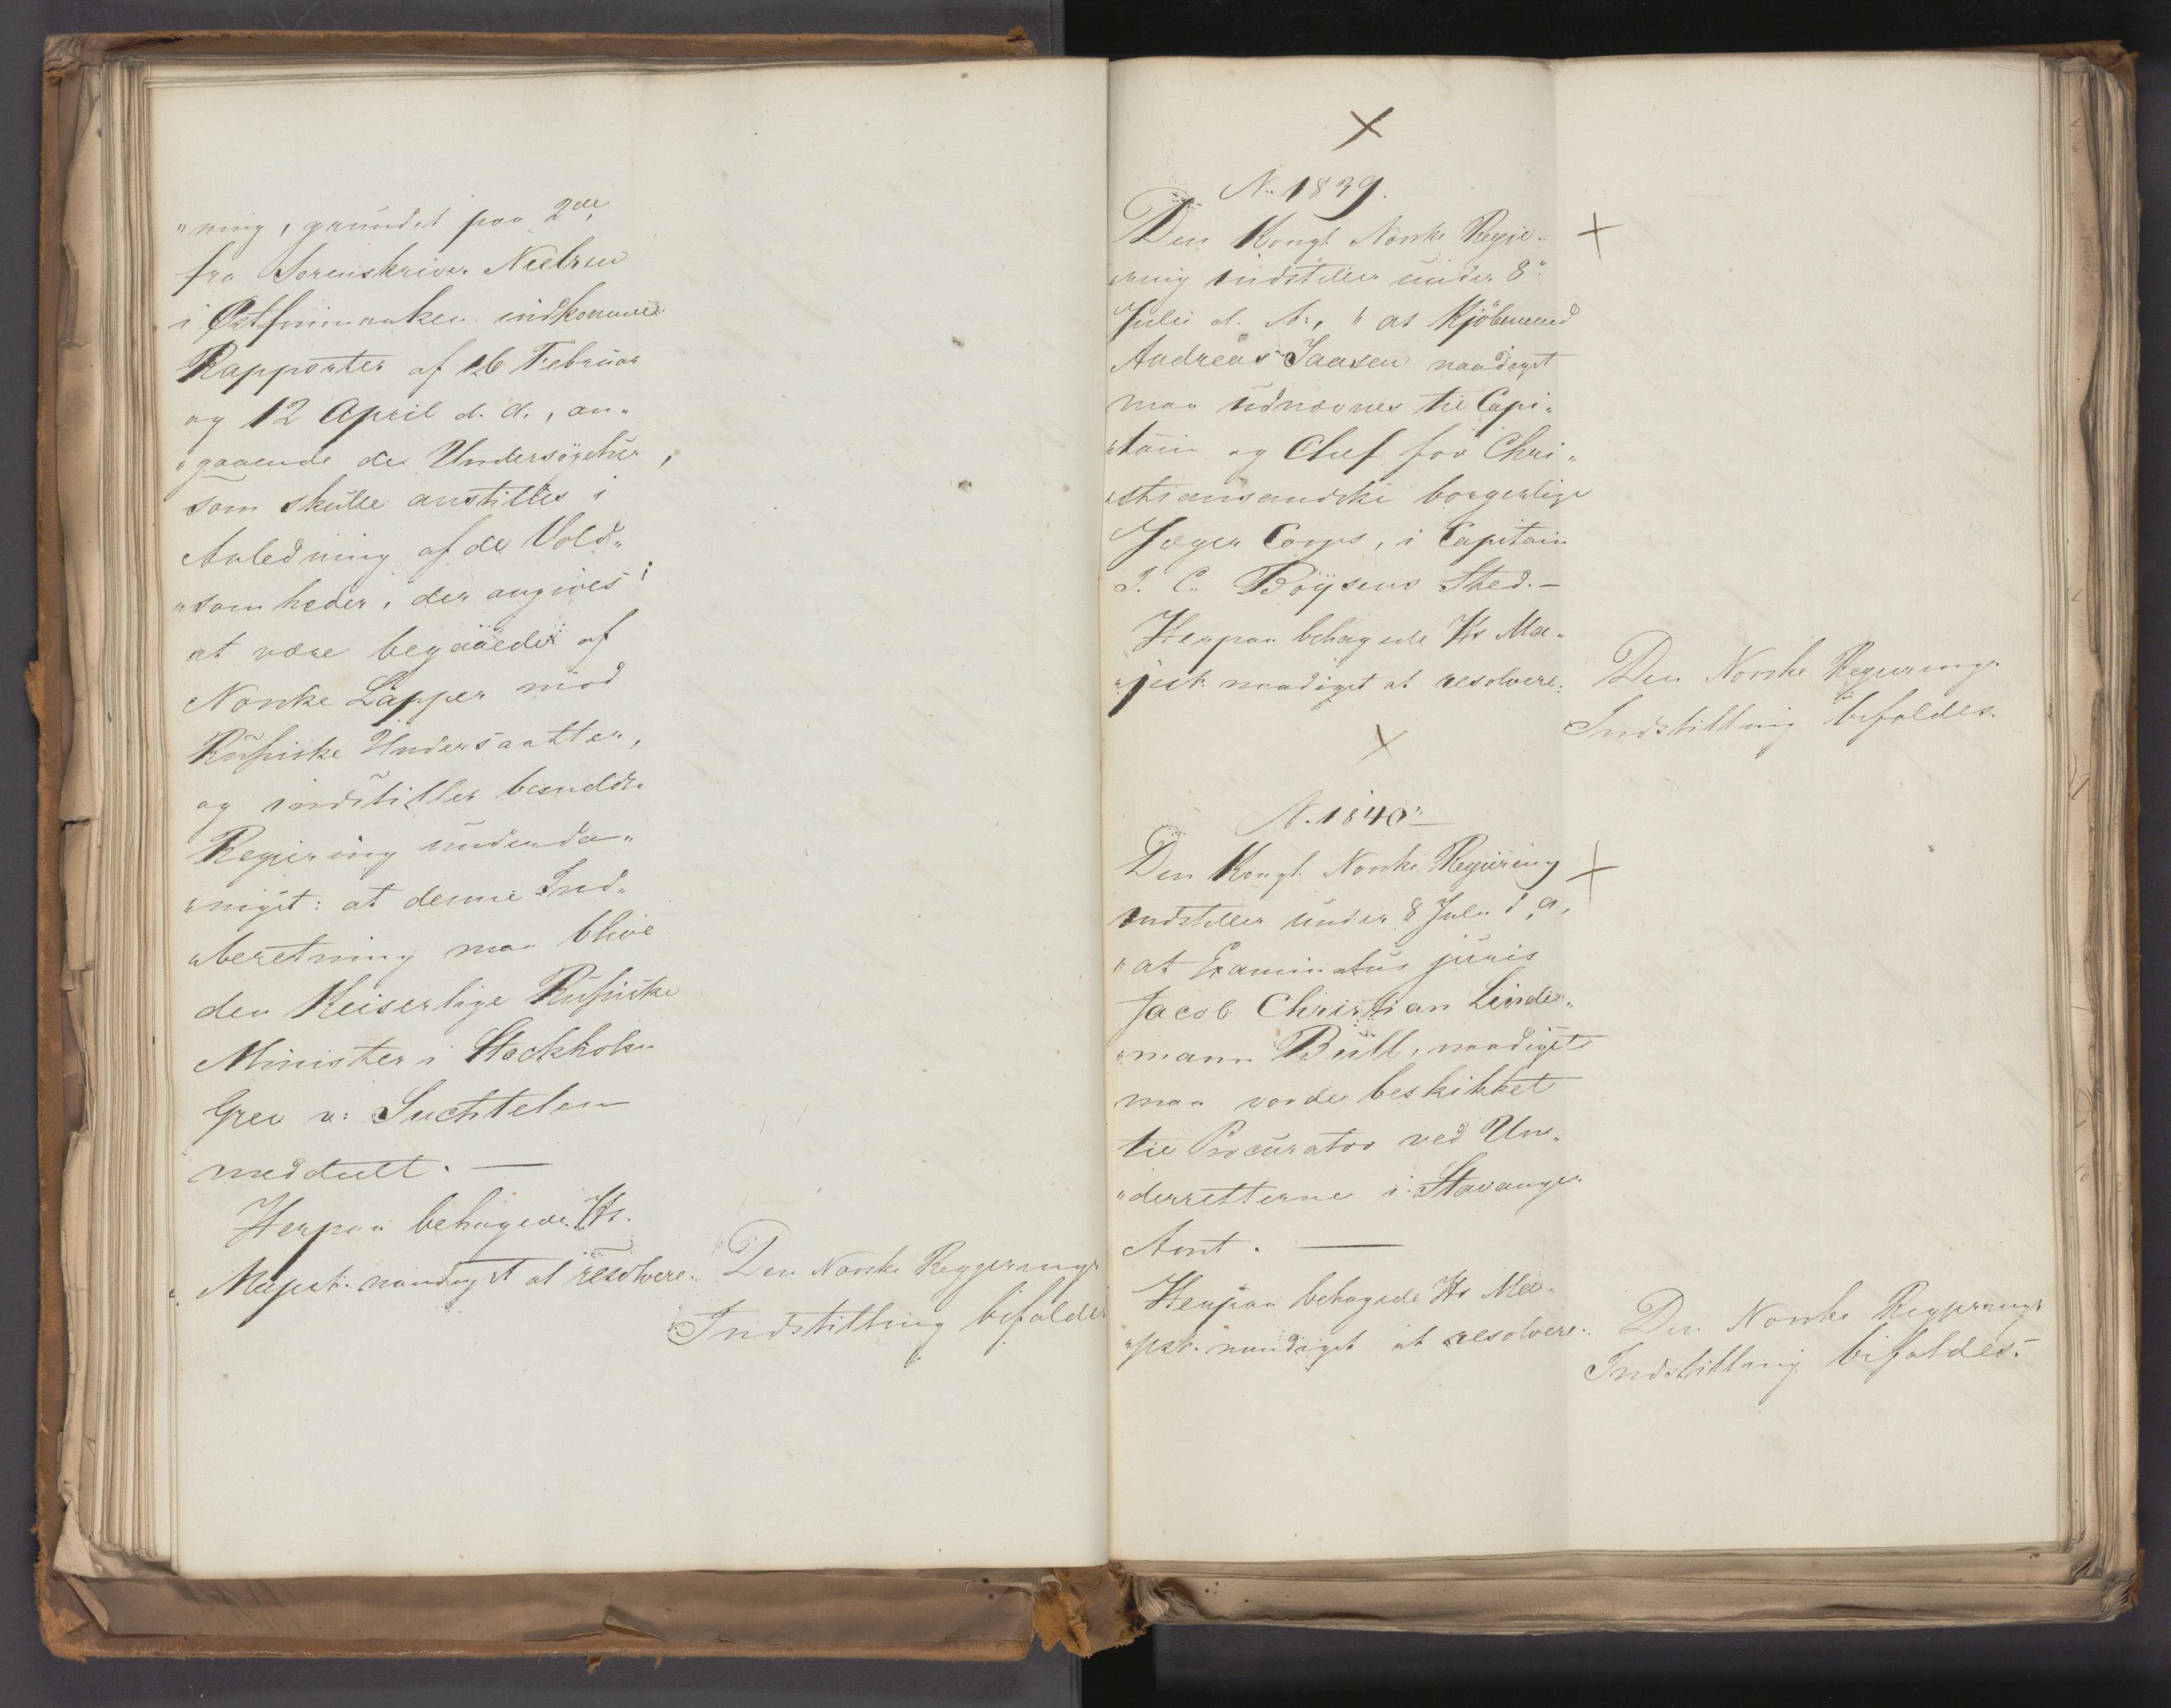 "ning, grundet paa 2de,
fra Sorenskriver Nielsen
i Østfinmarken indkomne
Rapporter af 26 Februar
og 12 April d. A., an„
„gaaende de Undersøgelser,
som skulle anstilles i
Anledning af de Vold„
„somheder, der angives
at være begaaede af
Norske Lapper mod
Russiske Undersaatter,
og indstiller bemeldte
Regjering underda„
„nigst: at denne Ind„
„beretning maa blive
den Keiserlige Russiske
Minister i Stockholm
Grev v: Suchtelen
meddeelt. —
Herpaa behagede Hs.
Majest. naadigst at resolvere:
Den Norske Regjerings
Indstilling bifaldes
N. 1839.
Den Kongl. Norske Regje„
„ring indstiller under 8
Julii d. A., "at Kjöbmand
Andreas Isaasen naadigst
maa udnævnes til Capi„
„tain og Chef for Chri„
„stiansandske borgerlige
Jæger Corps, i Capitain
I. C. Böÿsens Sted. —
Herpaa behagede Hs Ma„
„jest. naadigst at resolvere:
Den Norske Regjerings
Indstilling bifaldes.
N. 1840
Den Kongl. Norske Regjering
indstiller under 8 Julii d. a.
"at Examinatus juris
Jacob Christian Linde„
„mann Bull, naadigst
maa vorde beskikket
til Procurator ved Un„
„derretterne i Stavanger
Amt. —
Herpaa behagede Hs Ma„
„jest. naadigst at resolvere:
Den Norske Regjerings
Indstilling bifaldes.